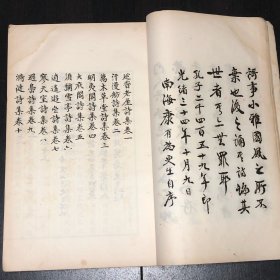 事小雅國風之所不
棄也後之誦吾詩其
世者其罪耶
孔子二千四百五十九年即
光緒三十四年十月九日
南海康有為更生自序
延香老屋詩集卷一
汗漫舫詩集卷二
萬木草堂詩集卷三
明夷閣詩集卷四
大庇閣詩集卷五
須彌雪亭詩集卷六
逍遙遊齋詩集卷七
寥天室詩集卷八
避島詩集卷九
漪漣詩集卷十